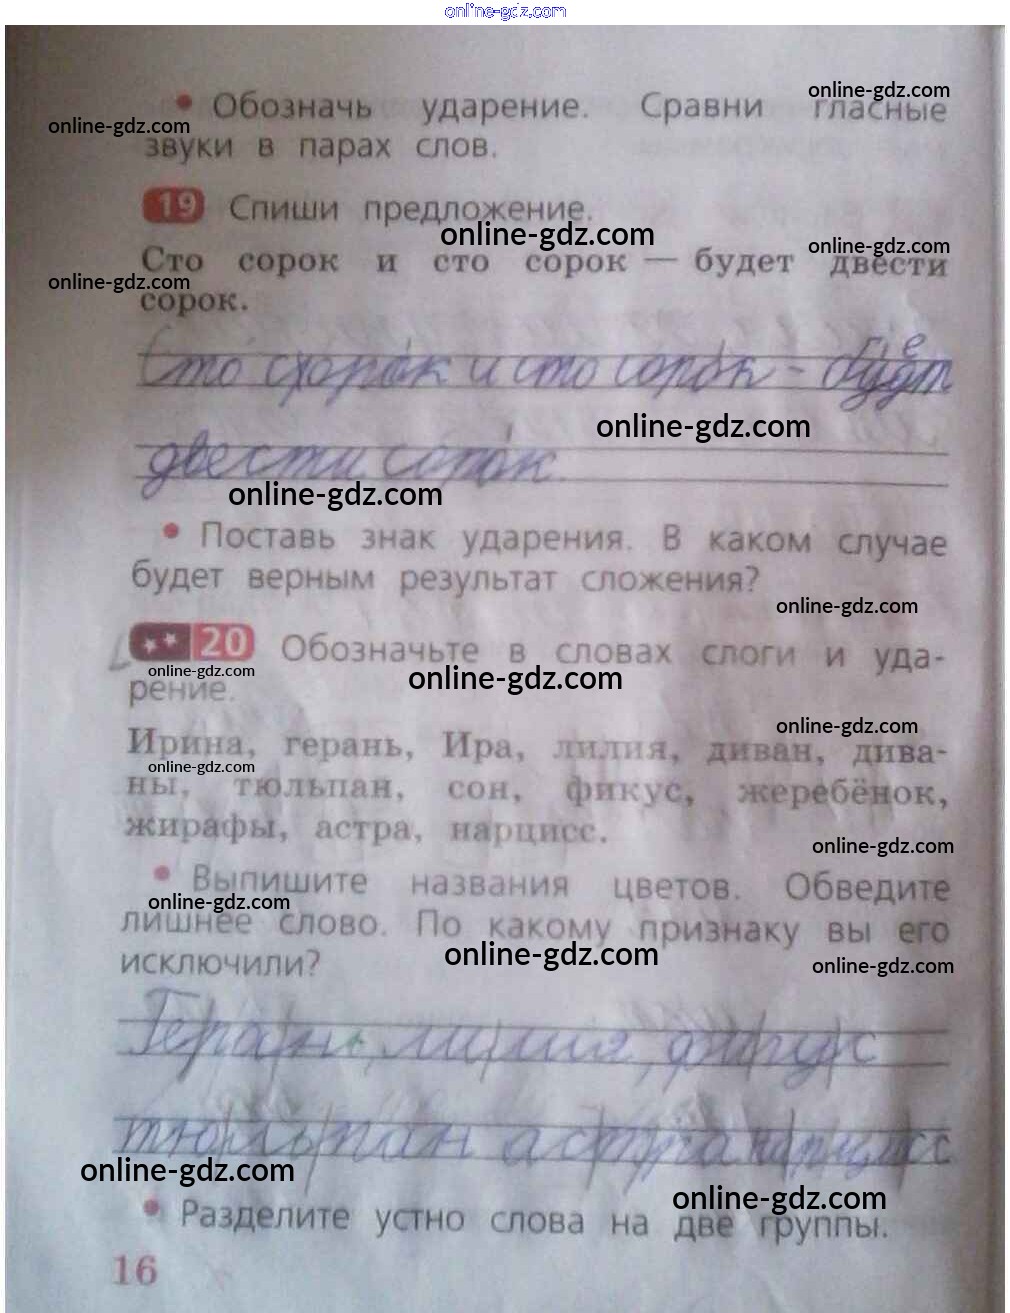 online-gdz.com
• Обозначь ударение. Сравни гласные
online-gdz.com
online-gdz.com
звуки в парах слов.
19 Спиши предложение.
online-gdz.com
online-gdz.com
Сто сорок и сто сорок — будет двести
online-gdz.com
сорок.
Сто сорок и сто сорок - будет
online-gdz.com
двести сорок
online-gdz.com
• Поставь знак ударения. В каком случае
будет верным результат сложения?
online-gdz.com
20 Обозначьте в словах слоги и уда-
online-gdz.com
online-gdz.com
рение.
online-gdz.com
Ирина, герань, Ира, лилия, диван, дива-
online-gdz.com
ны, тюльпан, сон, фикус, жеребёнок,
жирафы, астра, нарцисс.
online-gdz.com
• Выпишите названия цветов. Обведите
online-gdz.com
лишнее слово. По какому признаку вы его
online-gdz.com
исключили?
online-gdz.com
Герань, лилия, фикус
тюльпан астра нарцисс
online-gdz.com
online-gdz.com
• Разделите устно слова на две группы.
16